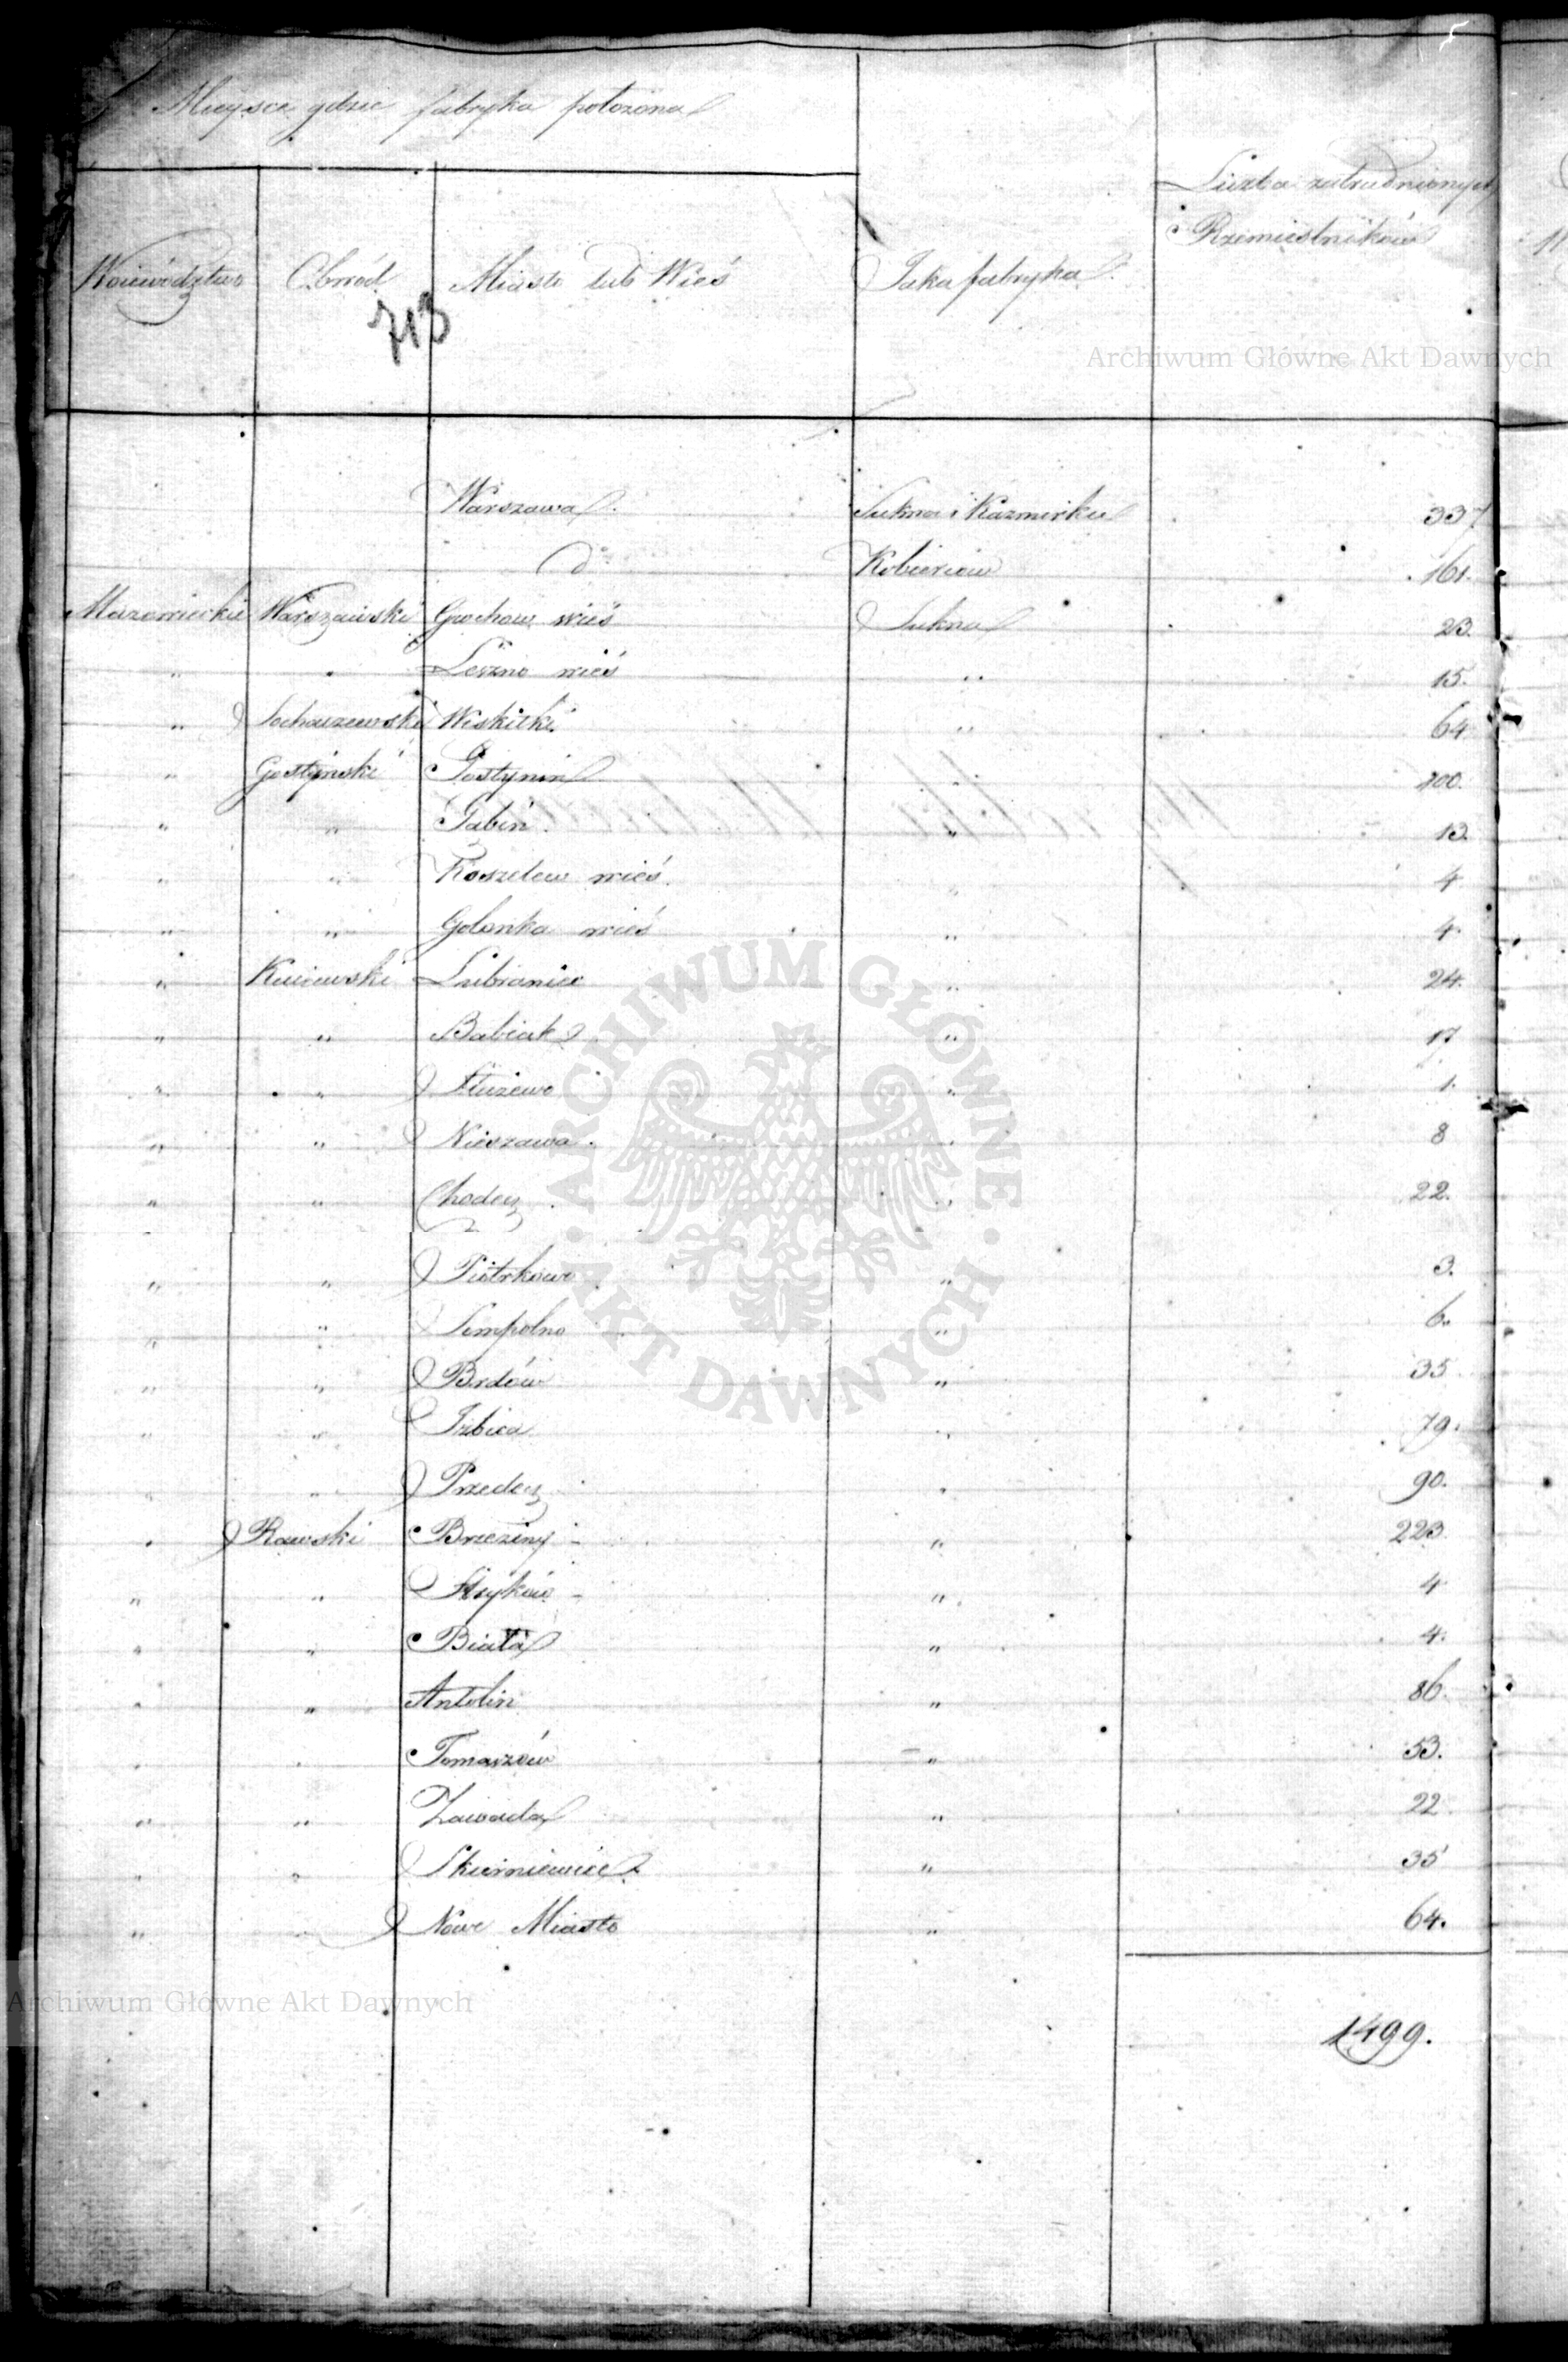 5
Mieysce gdzie fabryka położona
Liczba zatrudnionych
Rzemieślników
Woiewództwo Obwód Miasto lub Wieś Jaka fabryka
713
Archiwum Główne Akt Dawnych
Warszawa Sukna i Kazmirku 337
do Kobierców 161.
Mazowieckie Warszawski Grochow wieś Sukna 23.
" " Leszno wieś " 15.
" Sochaczewski Wiskitki " 64
" Gostyński Gostynin " 100.
" " Gąbin " 13.
" " Koszelew wieś " 4
" " Golonka wieś " 4.
" Kuiawski Lubraniec " 24.
" " Babiak " 17
" " Służewo " 1.
" " Nieszawa " 8
" " Chodecz " 22.
" " Piotrkowo " 3.
" " Sempolno " 6.
" " Brdów " 35
" " Izbica " 79.
" " Przedecz " 90.
" Rawski Brzeziny " 223.
" " Stryków " 4
" " Biała " 4.
" " Antolin " 86.
" " Tomaszów " 53.
" " Zawada " 22
" " Skierniewice " 35
" " Nowe Miasto " 64.
1499.
ARCHIWUM GŁÓWNE AKT DAWNYCH
Archiwum Główne Akt Dawnych